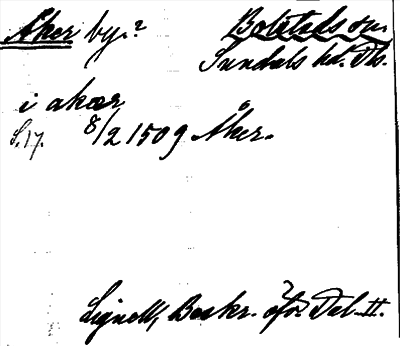 Aker by.? Bolstads sn.
Sundals hd. Ds.
i akær
S. 17. 8/2 1509 Åker.
Lignell, Beskr. öfv. Dal. II.